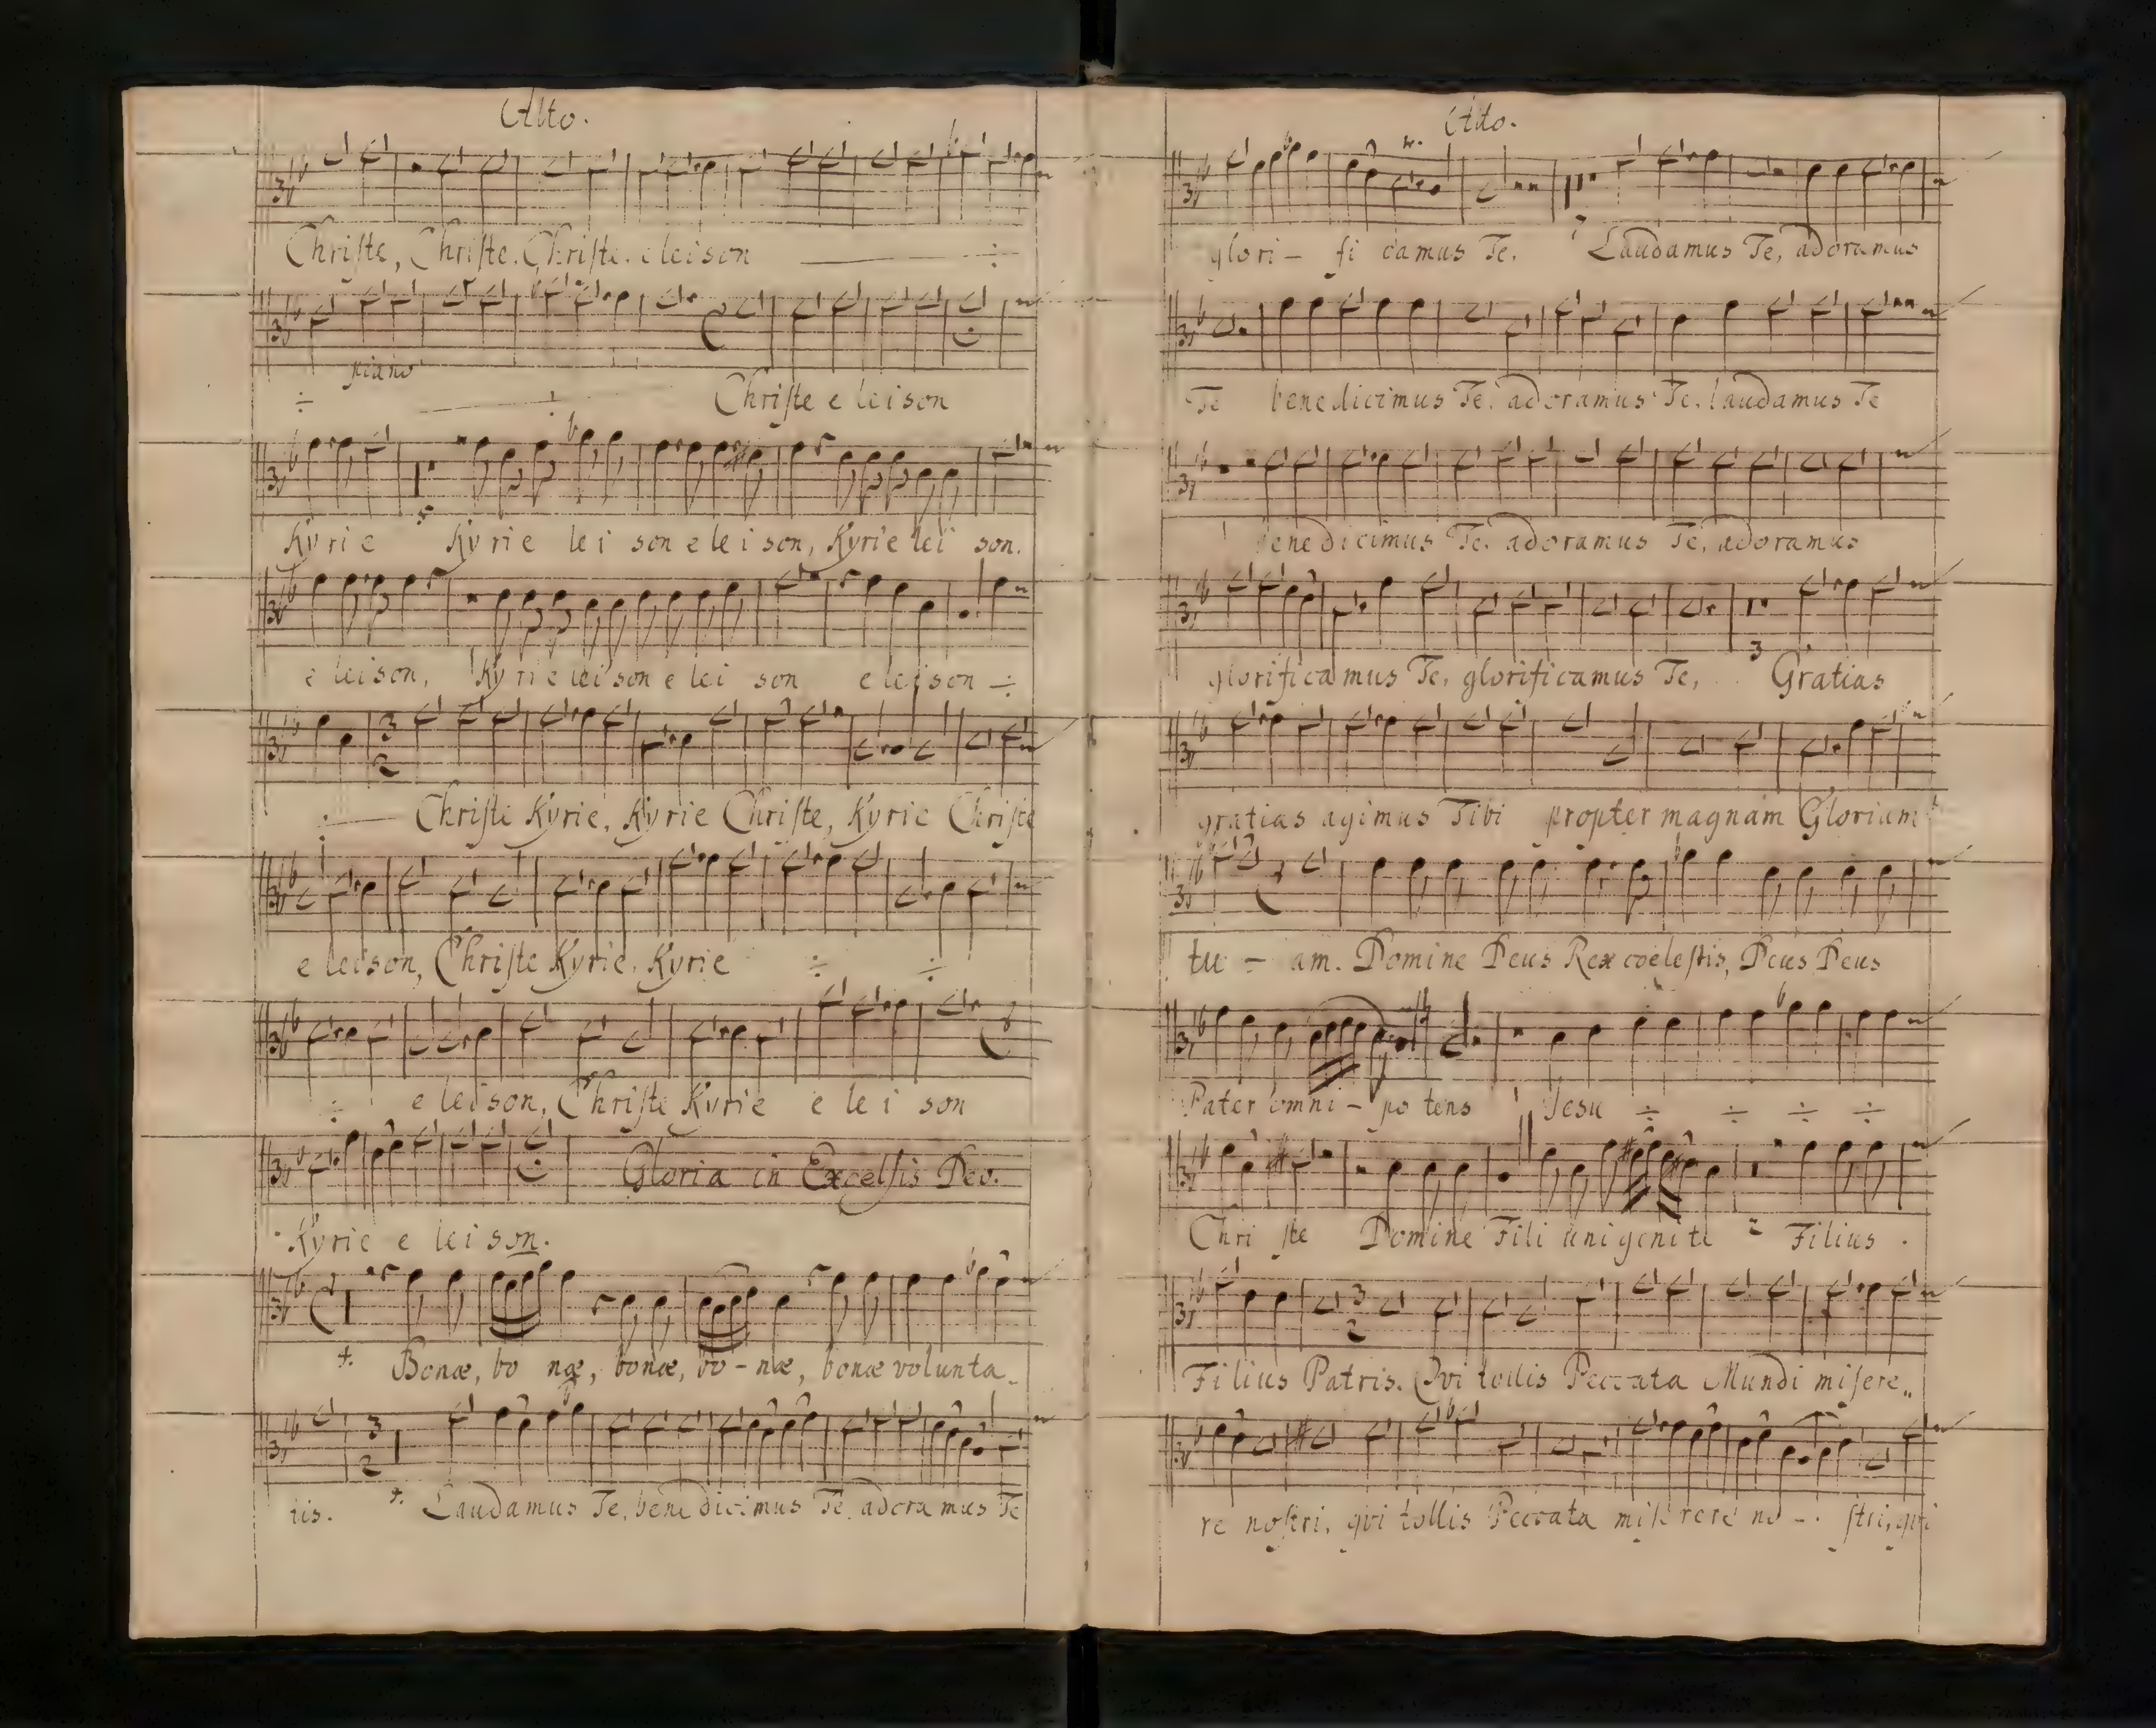 Alto.
Chriſte, Chriſte. Chriſte. eleison ÷
piano
÷ ÷ Chriſte e leison
Kyrie Kyrie lei son e lei son, Kyrie lei son.
e leison, Kyrie lei son e lei son e leison ÷
3
2
÷ Chriſte Kyrie, Kyrie Chriſte, Kyrie Chriſte
e leison, Chriſte Kyrie, Kyrie ÷ ÷
÷ e leison, Chriſte Kyrie e lei son
Gloria in Excelſis Deo.
Kyrie e lei son.
Bonæ, bo næ, bonæ, bo - næ, bonæ volunta_
3
2
tis. Laudamus Te, benedicimus Te, adoramus Te
Alto.
glori - fi camus Te. Laudamus Te, adoramus
Te benedicimus Te, adoramus Te, laudamus Te
benedicimus Te, adoramus Te, adoramus
3
glorificamus Te, glorificamus Te, Gratias
gratias agimus Tibi propter magnam Gloriam
tu - am. Domine Deus Rex coeleſtis, Deus Deus
Pater omni - po tens Jesu ÷ ÷ ÷ ÷
Chri ſte Domine Fili unigenite 2 Filius
3
2
Filius Patris. Qvi tollis Peccata Mundi miſere„
re noſtri, qvi tollis Peccata miſerere no - ſtri, qvi